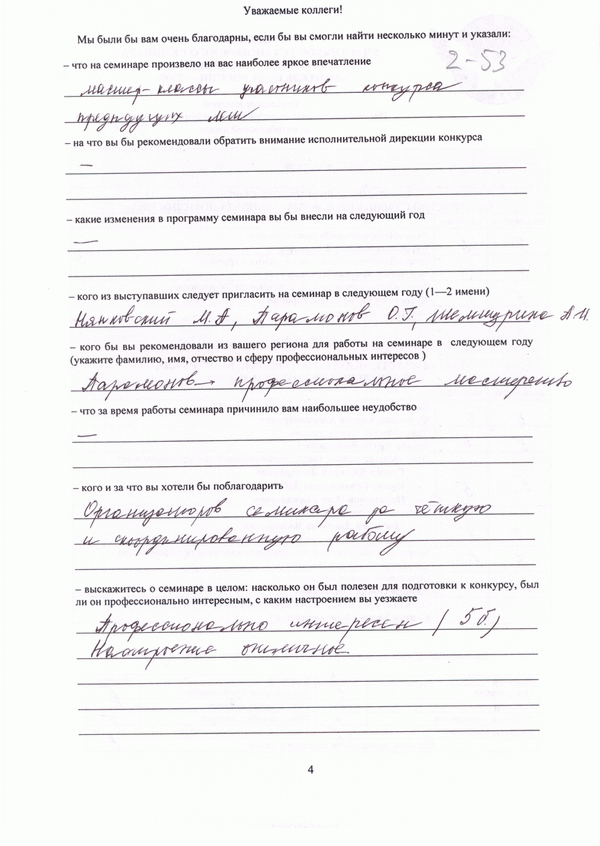 Уважаемые коллеги!
Мы были бы вам очень благодарны, если бы вы смогли найти несколько минут и указали:
2-53
– что на семинаре произвело на вас наиболее яркое впечатление
мастер-классы участников конкурса
предыдущих лет
– на что вы бы рекомендовали обратить внимание исполнительной дирекции конкурса
—
– какие изменения в программу семинара вы бы внесли на следующий год
—
– кого из выступавших следует пригласить на семинар в следующем году (1—2 имени)
Нянковский М.А, Парамонов О.Г, Жемчурина А.И.
– кого бы вы рекомендовали из вашего региона для работы на семинаре в следующем году
(укажите фамилию, имя, отчество и сферу профессиональных интересов )
Парамонов → профессиональное мастерство
– что за время работы семинара причинило вам наибольшее неудобство
—
– кого и за что вы хотели бы поблагодарить
Организаторов семинара за чёткую
и скоординированную работу
– выскажитесь о семинаре в целом: насколько он был полезен для подготовки к конкурсу, был
ли он профессионально интересным, с каким настроением вы уезжаете
Профессионально интересен (5б.)
Настроение отличное.
4